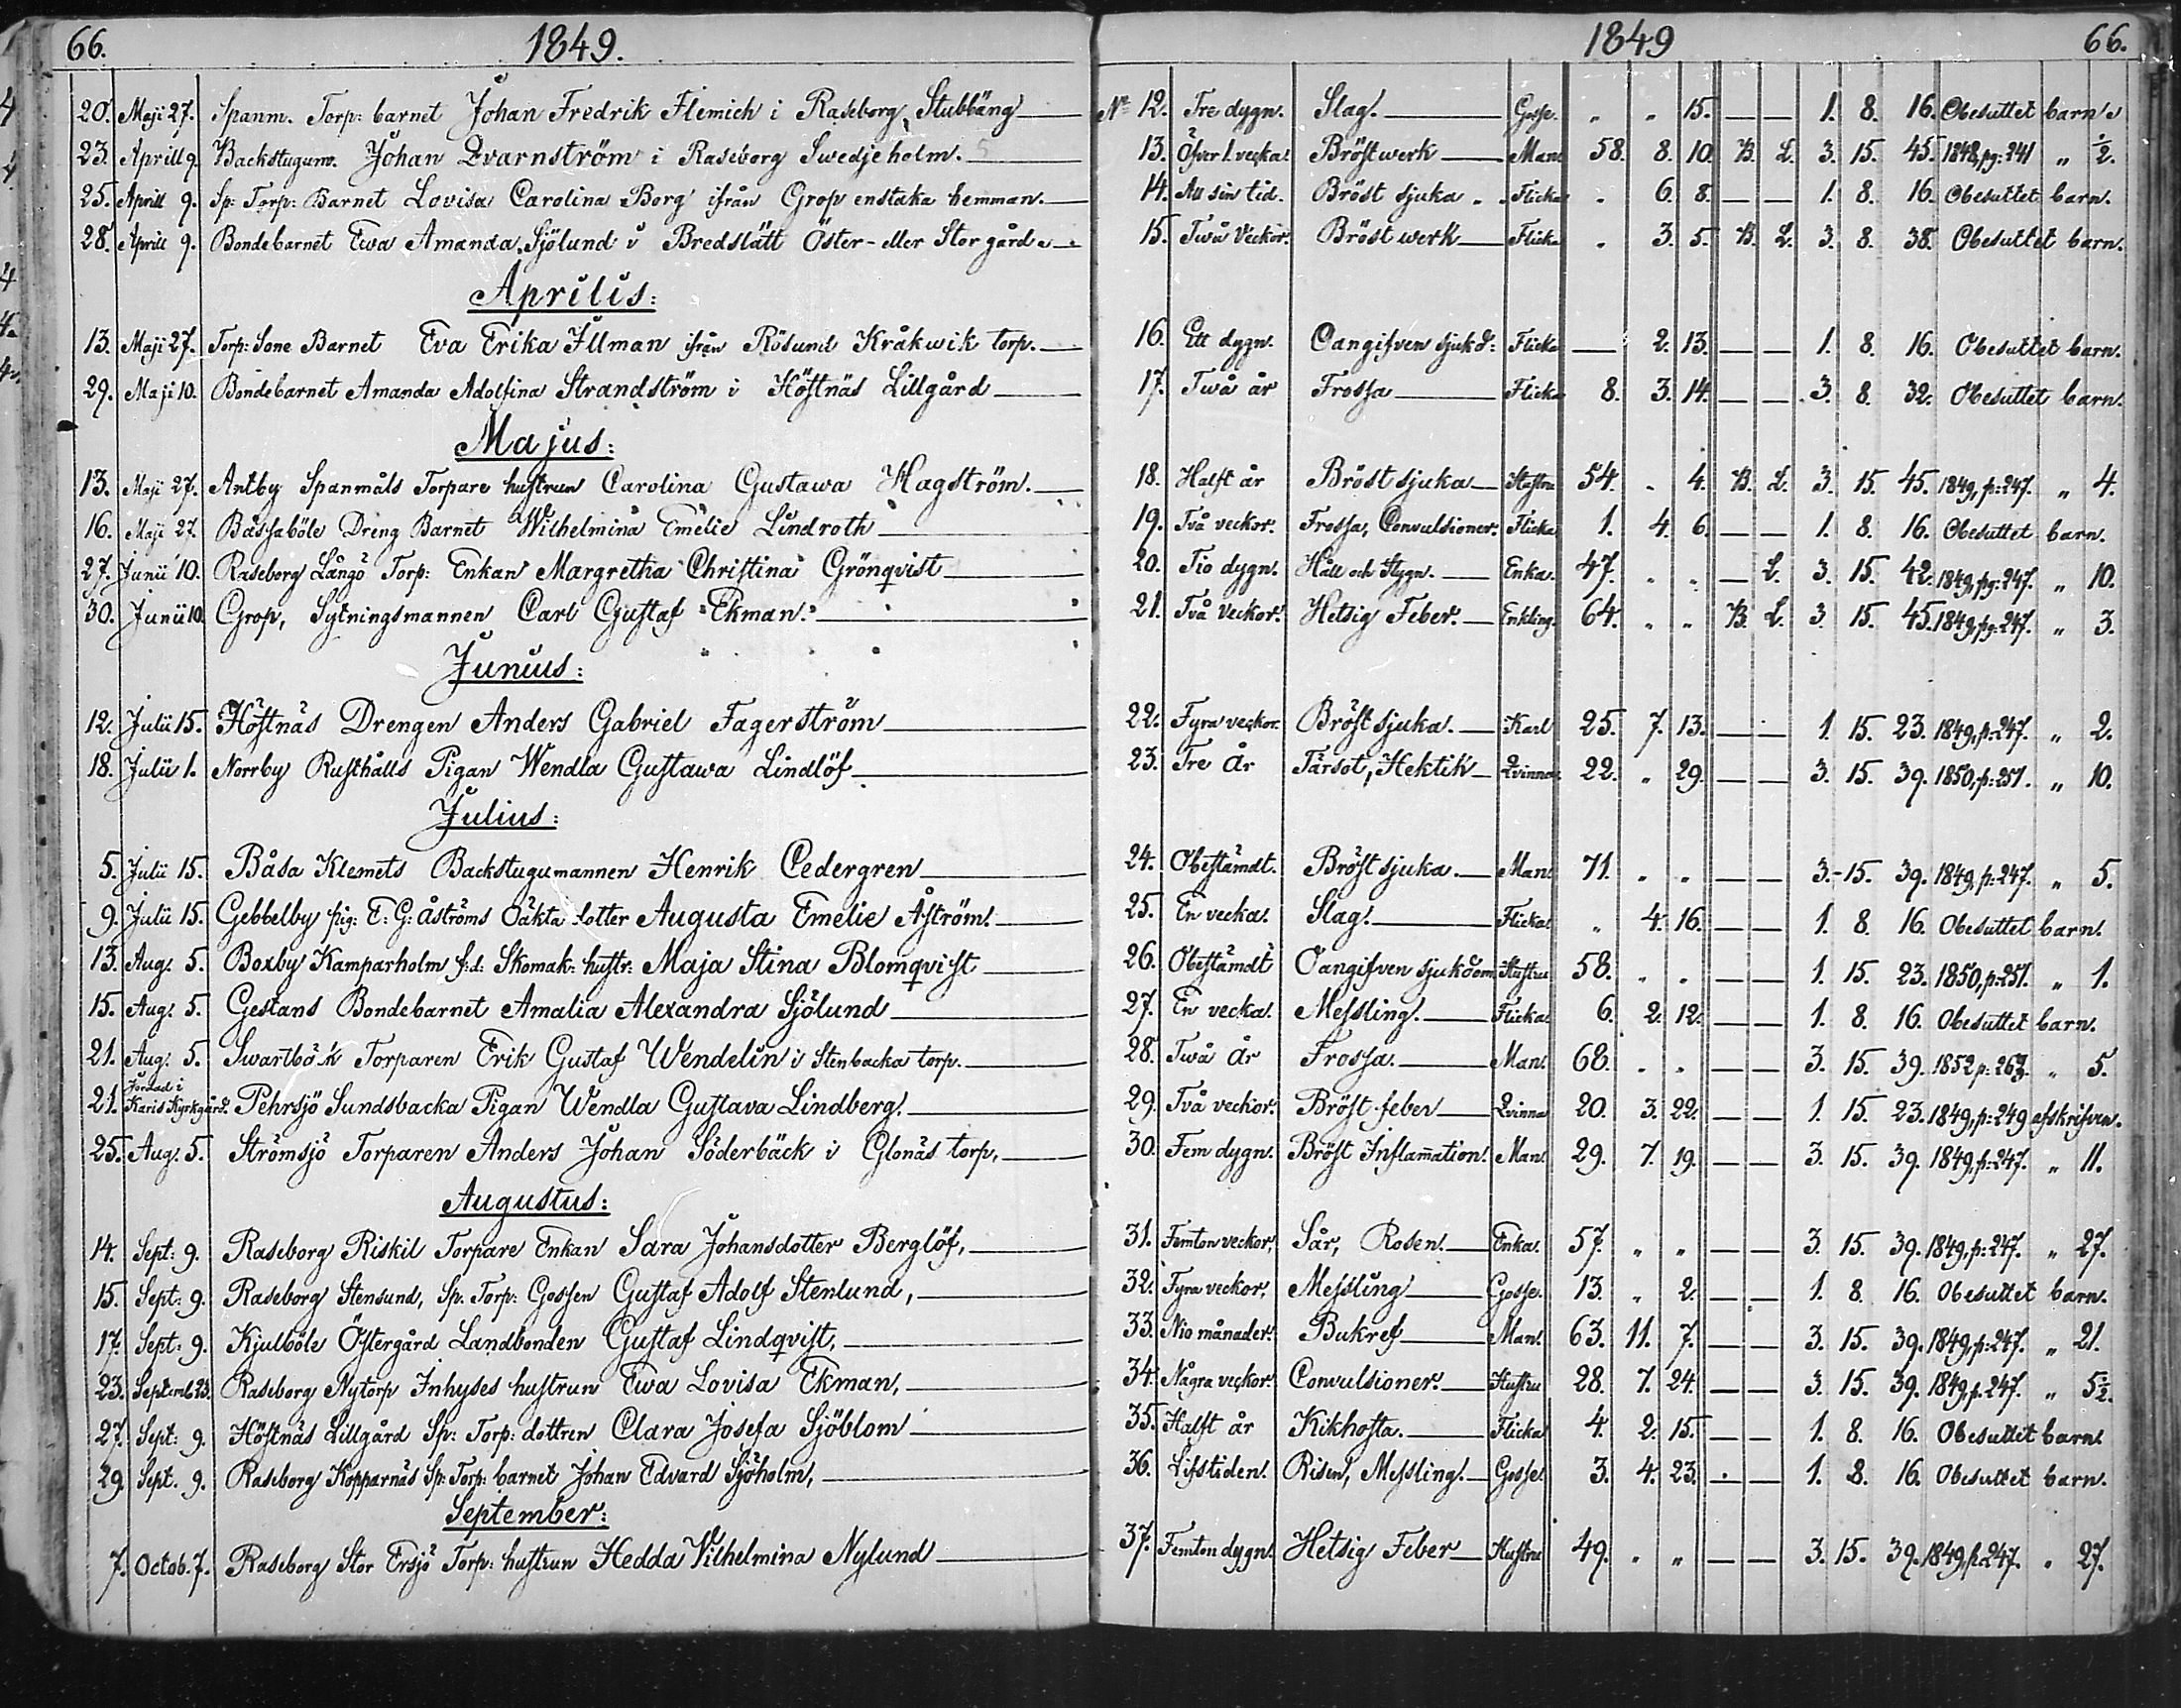 66. 1849. 1849 66.
20. Maji 27. Spanm. Torp: barnet Johan Fredrik Flemich i Raseborg, Stubbäng № 12. Tre dygn. Slag. Gosse. „ „ 15. — — 1. 8. 16. Obesuttet barn.
23. Aprill 9. Backstugum. Johan Qvarnström i Raseborg Swedjeholm. 13. Öfver 1. vecka. Bröstwerk Man. 58. 8. 10. B. L. 3. 15. 45. 1848, pg: 241 „ ½.
25. Aprill 9. Sp: Torp: Barnet Lovisa Carolina Borg ifrån Grop enstaka hemman. 14. All sin tid. Bröst sjuka. Flicka „ 6. 8. — — 1. 8. 16. Obesuttet barn.
28. Aprill 9. Bondebarnet Ewa Amanda Sjölund i Bredslätt Öster- eller Stor gård. 15. Twå Veckor. Bröst werk Flicka „ 3. 5. B. L. 3. 8. 38. Obesuttet barn.
Aprilis:
13. Maji 27. Torp: Sone Barnet Eva Erika Illman ifrån Rösund Kråkwik torp. 16. Ett dygn. Oangifven sjukd: Flicka — 2. 13. — — 1. 8. 16. Obesuttet barn.
29. Maji 10. Bondebarnet Amanda Adolfina Strandström i Höstnäs Lillgård 17. Twå år Frossa Flicka 8. 3. 14. — — 3. 8. 32. Obesuttet barn.
Majus:
13. Maji 27. Antby Spanmåls Torpare hustrun Carolina Gustawa Hagström. 18. Halft år Bröst sjuka Hustru 54. „ 4. B. L. 3. 15. 45. 1849, p: 247. „ 4.
16. Maji 27. Bässaböle Dreng Barnet Wilhelmina Emelie Lindroth 19. Två veckor. Frossa, Convulsioner. Flicka 1. 4. 6. — — 1. 8. 16. Obesuttet barn.
27. Junii 10. Raseborg Långö Torp: Enkan Margretha Christina Grönqvist 20. Tio dygn. Håll och Stygn. Enka. 47. „ „ — L. 3. 15. 42. 1849, pg: 247. „ 10.
30. Junii 10. Grop, Sytningsmannen Carl Gustaf Ekman. 21. Två Veckor. Hetsig Feber. Enkling. 64. „ „ B. L. 3. 15. 45. 1849, pg: 247. „ 3.
Junius:
12. Julii 15. Höstnäs Drengen Anders Gabriel Fagerström 22. Fyra veckor. Bröst sjuka. Karl 25. 7. 13. — — 1. 15. 23. 1849, p: 247. „ 2.
18. Julii 1. Norrby Rusthålls Pigan Wendla Gustawa Lindlöf 23. Tre år Tärsot, Hektik Qvinna 22. „ 29. — — 3. 15. 39. 1850, p: 251. „ 10.
Julius:
5. Julii 15. Båsa Klemets Backstugumannen Henrik Cedergren 24. Obestämdt. Bröst sjuka. Man. 71. „ „ — — 3. 15. 39. 1849, p: 247. „ 5.
9. Julii 15. Gebbelby pig: E: G: Åströms Oäkta dotter Augusta Emelie Åström. 25. En vecka. Slag. Flicka. „ 4. 16. — — 1. 8. 16. Obesuttet barn.
13. Aug. 5. Boxby Kamparholm f:d: Skomak: hustr: Maja Stina Blomqvist 26. Obestämdt Oangifven sjukdom Hustru 58. „ „ — — 1. 15. 23. 1850, p: 251. „ 1.
15. Aug. 5. Gestans Bondebarnet Amalia Alexandra Sjölund 27. En vecka. Messling. Flicka. 6. 2. 12. — — 1. 8. 16. Obesuttet barn.
21. Aug. 5. Swartbäck Torparen Erik Gustaf Wendelin i Stenbacka torp. 28. Twå år Frossa. Man. 68. „ „ — — 3. 15. 39. 1852 p: 263. „ 5.
21. Jordad i Karis Kyrkgård. Pehrsjö Sundsbacka Pigan Wendla Gustava Lindberg. 29. Två veckor. Bröst feber Qvinna 20. 3. 22. — — 1. 15. 23. 1849, p: 249 afskrifven.
25. Aug. 5. Strömsjö Torparen Anders Johan Söderbäck i Glonäs torp, 30. Fem dygn. Bröst Inflamation. Man. 29. 7. 19. — — 3. 15. 39. 1849, p: 247. „ 11.
Augustus:
14. Sept: 9. Raseborg Riskil Torpare Enkan Sara Johansdotter Berglöf, 31. Femton veckor, Sår, Rosen. Enka. 57. „ „ — — 3. 15. 39. 1849, p: 247. „ 27.
15. Sept: 9. Raseborg Stensund, Sp: Torp: Gossen Gustaf Adolf Stenlund, 32. Fyra veckor, Messling Gosse. 13. „ 2. — — 1. 8. 16. Obesuttet barn.
17. Sept: 9. Kjulböle Östergård Landbonden Gustaf Lindqvist, 33. Nio månader. Bukref Man. 63. 11. 7. — — 3. 15. 39. 1849, p: 247. „ 21.
23. Septemb. 23. Raseborg Nytorp Inhyses hustrun Ewa Lovisa Ekman, 34. Några veckor. Convulsioner. Hustru 28. 7. 24. — — 3. 15. 39. 1849, p. 247. „ 5½.
27. Sept: 9. Höstnäs Lillgård Sp: Torp: dottren Clara Josefa Sjöblom 35. Halft år Kikhosta. Flicka 4. 2. 15. — — 1. 8. 16. Obesuttet barn.
29. Sept. 9. Raseborg Kopparnäs Sp: Torp: barnet Johan Edvard Sjöholm, 36. Lifstiden. Risen, Messling. Gosse. 3. 4. 23. — — 1. 8. 16. Obesuttet barn.
September:
7. Octob. 7. Raseborg Stor Ersjö Torp: hustrun Hedda Vilhelmina Nylund 37. Femton dygn. Hetsig Feber Hustru 49. „ „ — — 3. 15. 39. 1849, p. 247. „ 27.